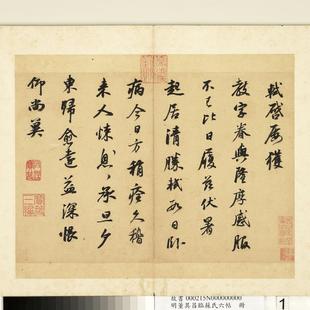 軾啟屢獲
教字眷與隆厚感服
不已比日履茲伏暑
起居清勝軾數日臥
病今日方稍痊久稽
來人悚息承旦夕
東歸愈遠益深悵
仰尚冀
故書000215N000000000 冊
明董其昌臨蘇氏六帖 冊
1